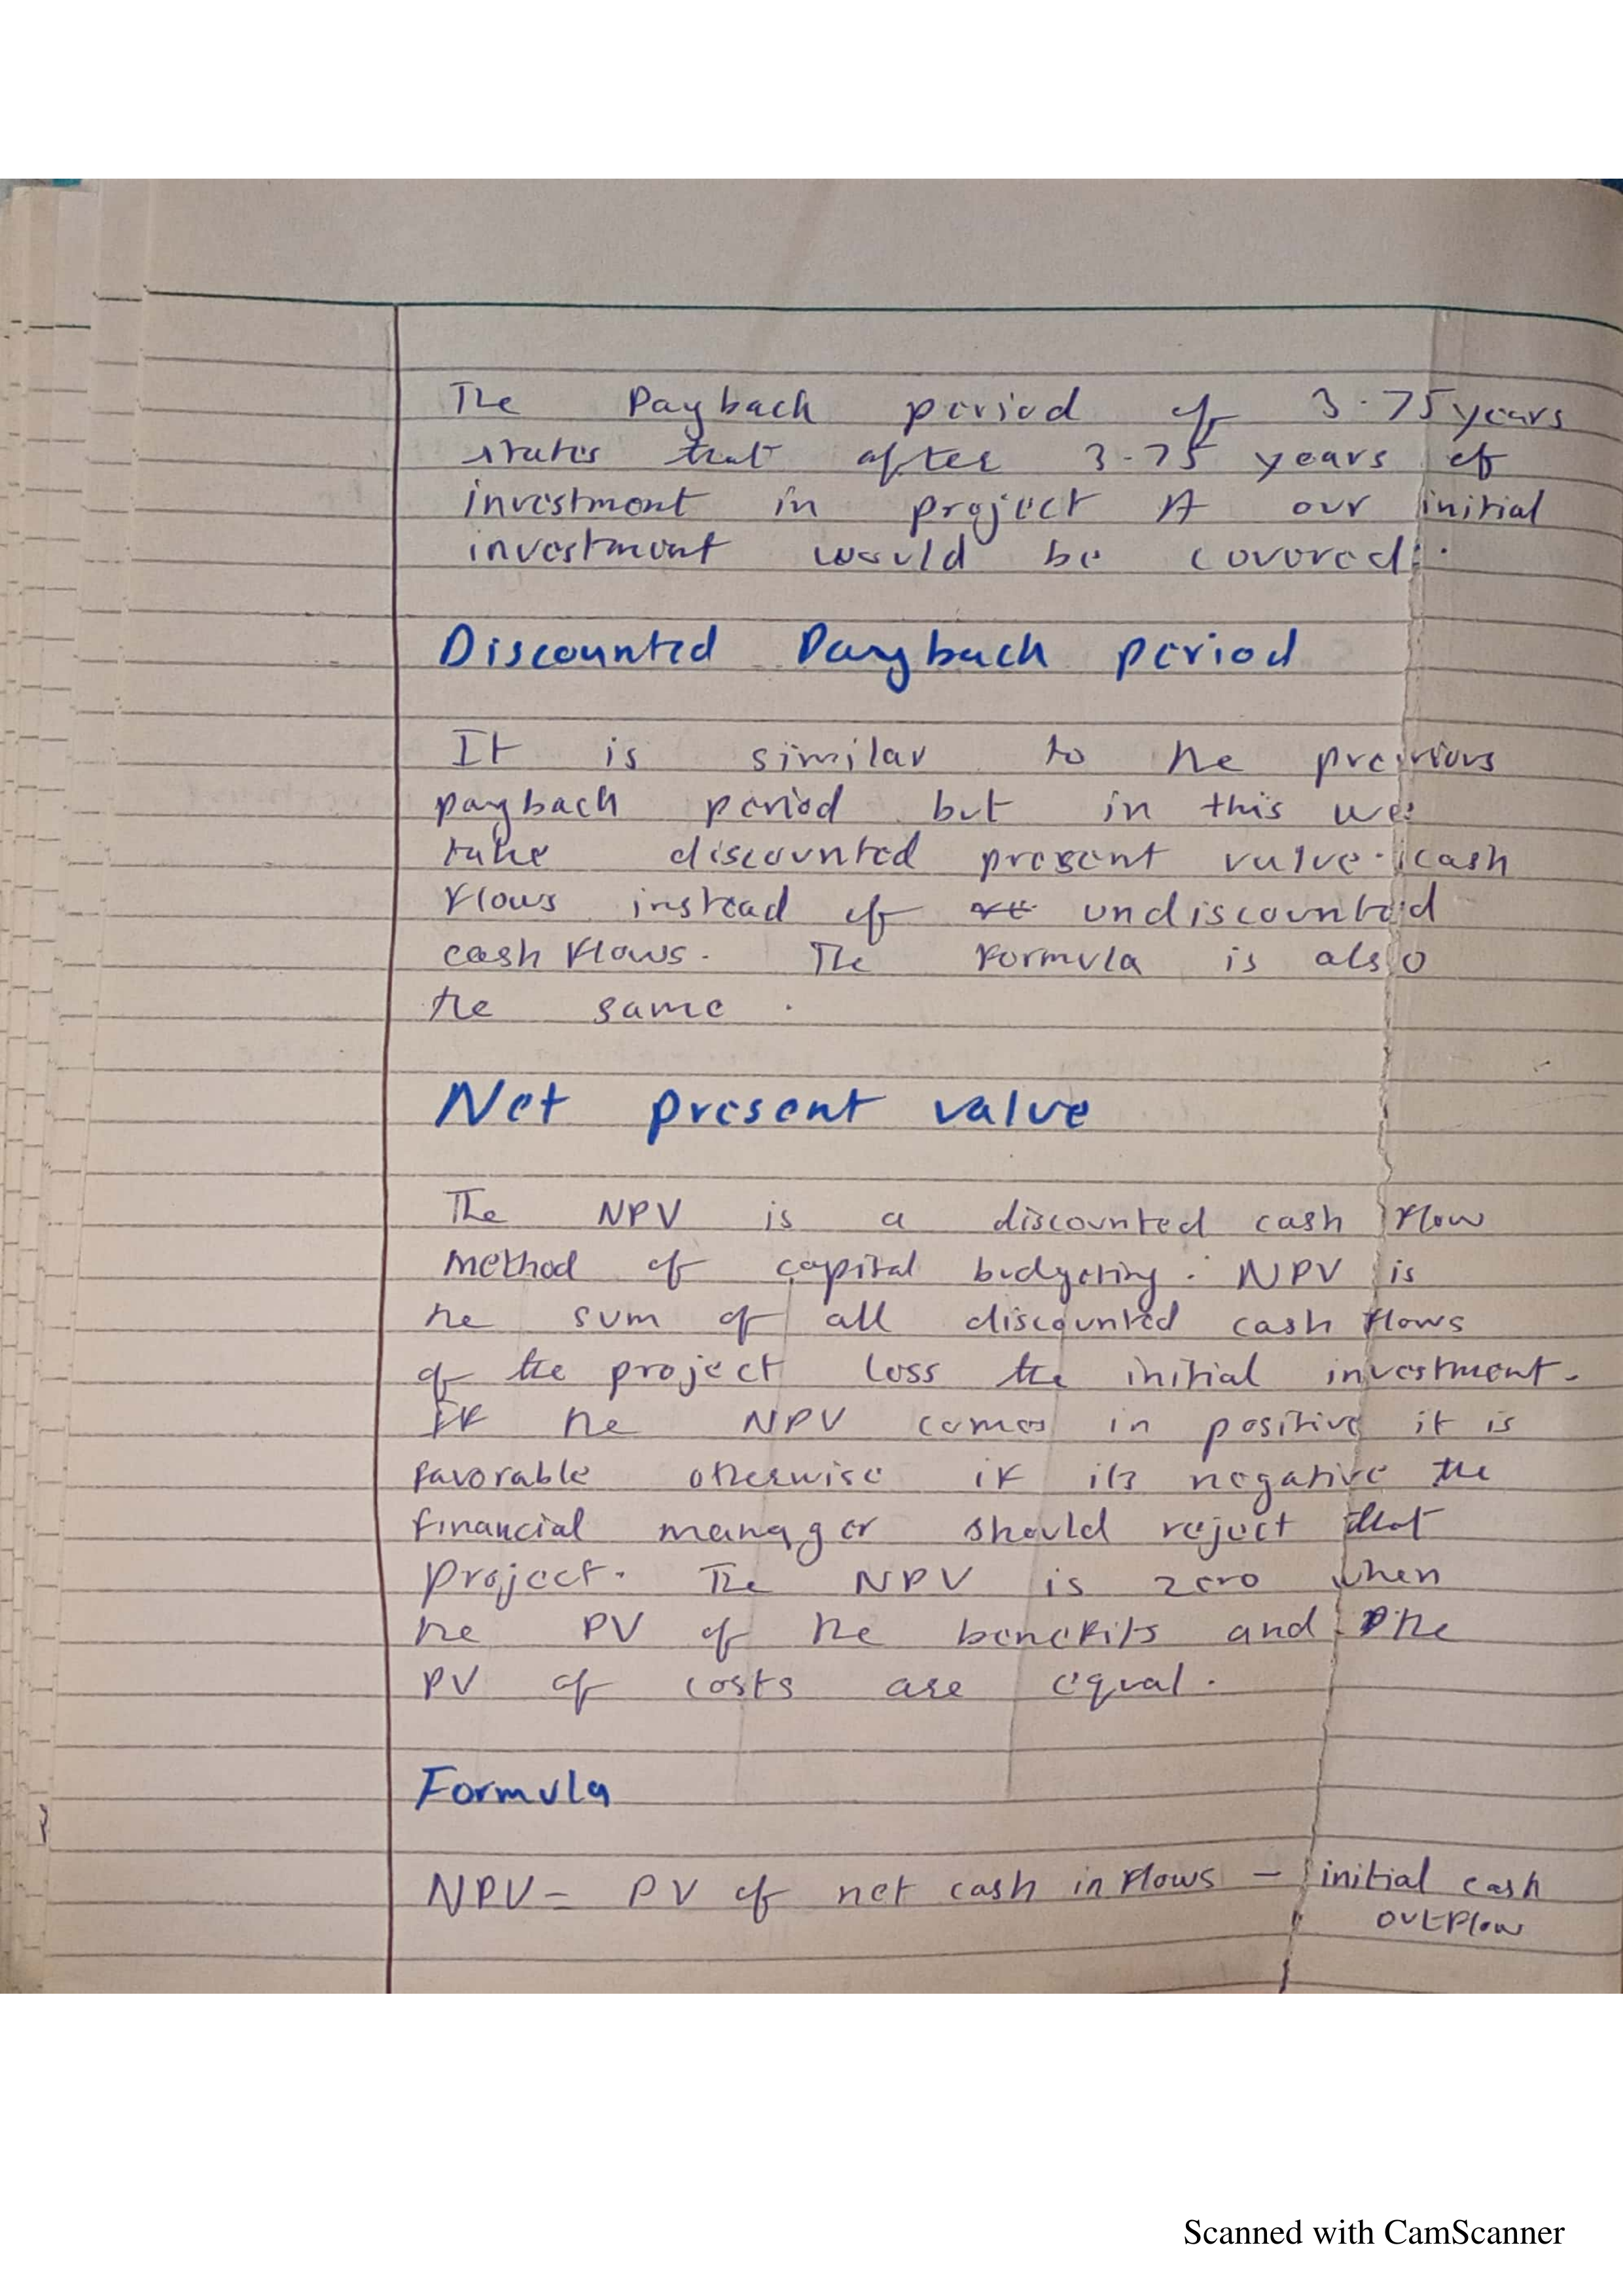 The Payback period of 3.75 years
states that after 3.75 years of
investment in project A our initial
investment would be covered.
Discounted Payback period
It is similar to the previous
payback period but in this we
take discounted present value cash
flows instead of undiscounted
cash flows. The formula is also
the same.
Net present value
The NPV is a discounted cash flow
method of capital budgeting. NPV is
the sum of all discounted cash flows
of the project less the initial investment.
If the NPV comes in positive it is
favorable otherwise if its negative the
financial manager should reject that
project. The NPV is zero when
the PV of the benefits and the
PV of costs are equal.
Formula
NPV = PV of net cash inflows - initial cash
outflow
Scanned with CamScanner